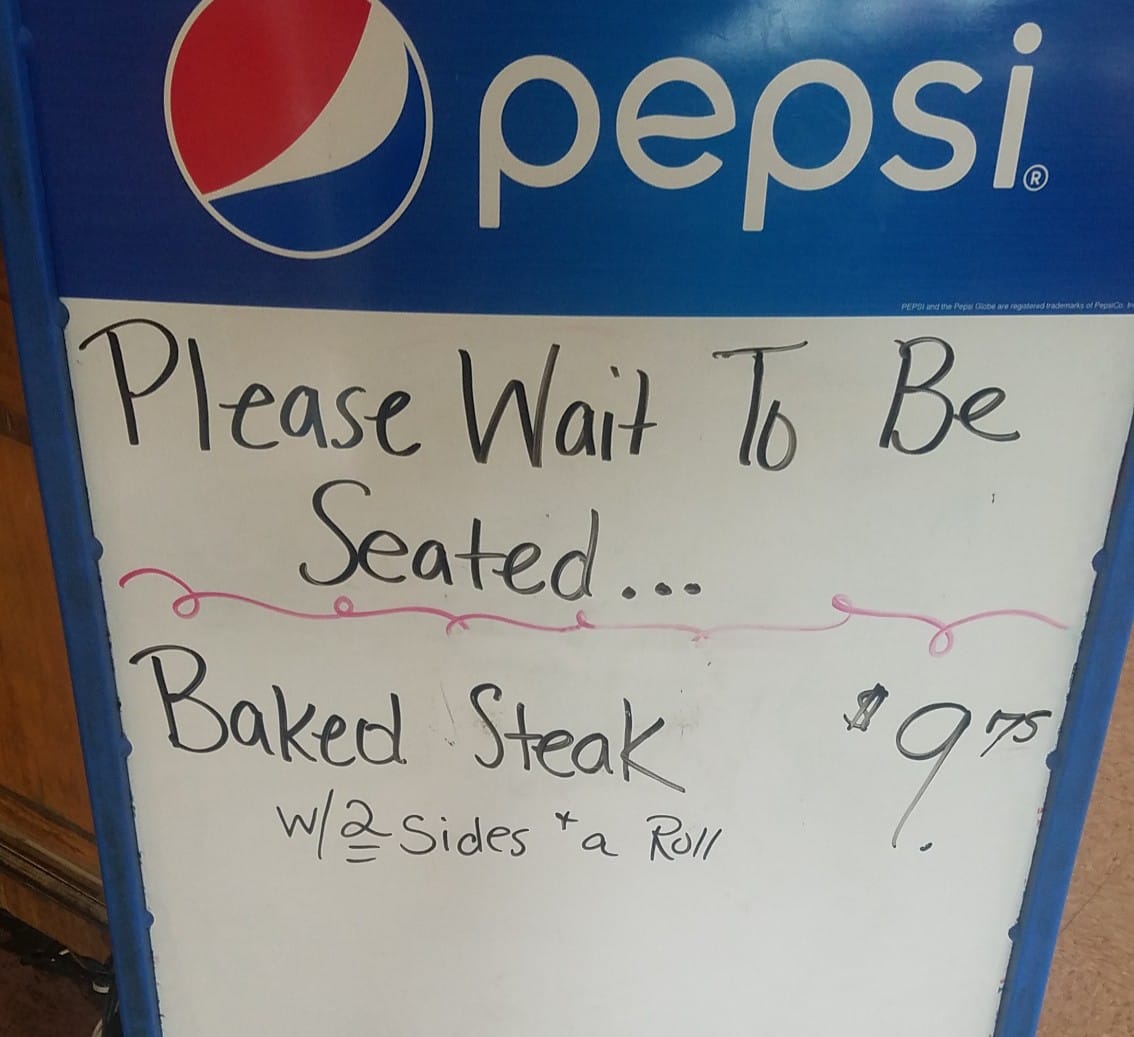 pepsi®
PEPSI and the Pepsi Globe are registered trademarks of PepsiCo.
Please Wait To Be
Seated...
Baked Steak $9.75
w/2 Sides + a Roll